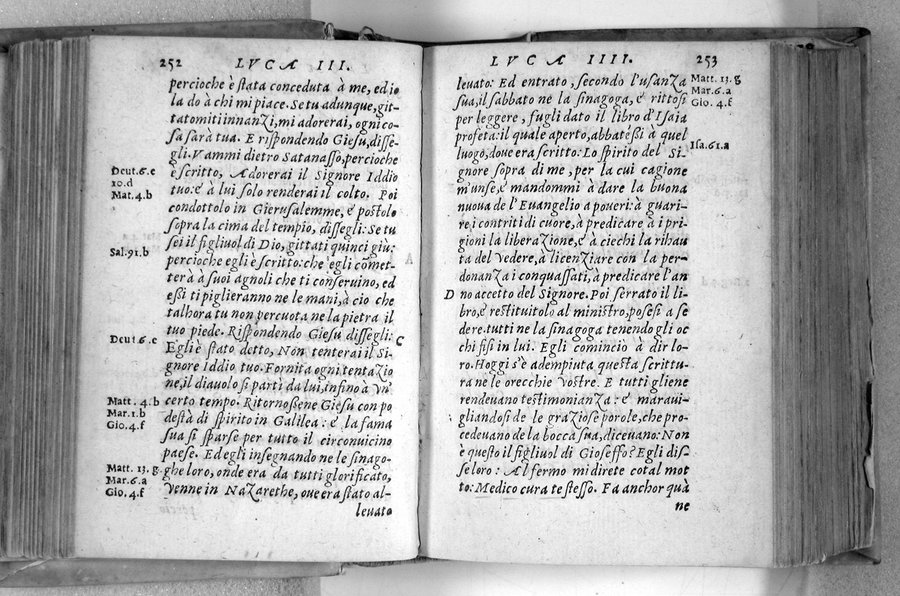 252 LVCA III.
percioche è stata conceduta à me, ed io
la do à chi mi piace. Se tu adunque, git-
tatomiti innanzi, mi adorerai, ogni co-
sa sarà tua. E rispondendo Giesu, disse-
gli. Vammi dietro Satanasso, percioche
è scritto, Adorerai il Signore Iddio
tuo: è à lui solo renderai il colto. Poi
condottolo in Gierusalemme, è postolo
sopra la cima del tempio, dissegli: Se tu
sei il figliuol di Dio, gittati quinci giù:
percioche egli è scritto: che egli comet-
terà à suoi agnoli che ti conseruino, ed
essi ti piglieranno ne le mani, à cio che
talhora tu non percuota ne la pietra il
tuo piede. Rispondendo Giesu dissegli:
Egli è stato detto, Non tenterai il Si-
gnore Iddio tuo. Fornita ogni tentazio
ne, il diauolo si parti da lui, infino à vn'
certo tempo. Ritornossene Giesu con po
destà di spirito in Galilea: è la fama
sua si sparse per tutto il circonuicino
paese. Ed egli insegnando ne le sinago-
ghe loro, onde era da tutti glorificato,
venne in Nazarethe, oue era stato al-
leuato
Deut. 6. c
10. d
Mat. 4. b
Sal. 91. b
Deut. 6. c
C
Matt. 4. b
Mar. 1. b
Gio. 4. f
Matt. 13. g
Mar. 6. a
Gio. 4. f
LVCA IIII. 253
leuato: Ed entrato, secondo l'usanza
sua, il sabbato ne la sinagoga, è rittosi
per leggere, fugli dato il libro d'Isaia
profeta: il quale aperto, abbatessi à quel
luogo, doue era scritto: Lo spirito del Si-
gnore sopra di me, per la cui cagione
m'unse, è mandommi à dare la buona
nuoua de l'Euangelio a poueri: à guari-
re i contriti di cuore, à predicare à i pri-
gioni la liberazione, è à ciechi la rihauu
ta del vedere, à licenziare con la per-
donanza i conquassati, à predicare l'an
no accetto del Signore. Poi serrato il li-
bro, è restituitolo al ministro, posesi a se
dere. tutti ne la sinagoga tenendo gli oc
chi fisi in lui. Egli cominciò à dir lo-
ro. Hoggi s'è adempiuta questa scrittu-
ra ne le orecchie vostre. E tutti gliene
rendeuano testimonianza: è maraui-
gliandosi de le graziose porole, che pro-
cedeuano de la bocca sua, diceuano: Non
è questo il figliuol di Gioseffo? Egli dis-
se loro: Al fermo mi direte cotal mot
to: Medico cura te stesso. Fa anchor quà
ne
Matt. 13. g
Mar. 6. a
Gio. 4. f
Isa. 61. a
D